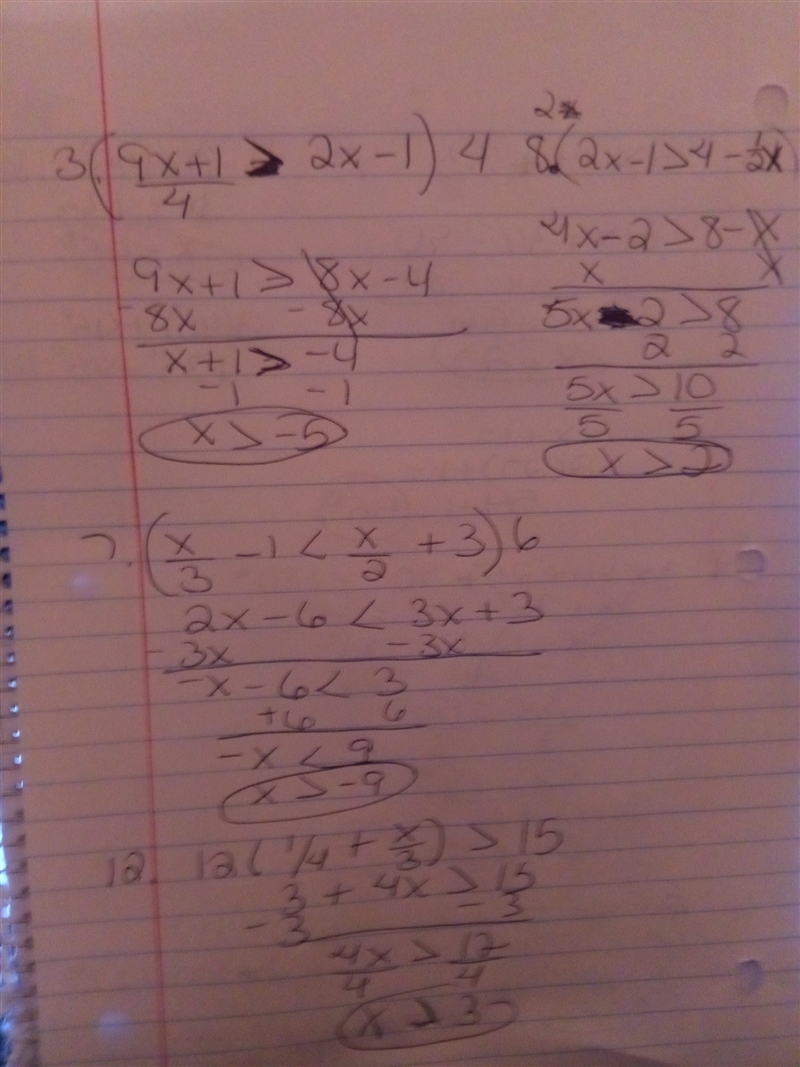 3. (9x+1/4 > 2x-1) 4
9x+1 > 8x-4
-8x -8x
x+1 > -4
-1 -1
x > -5
2
8. (2x-1>4-1/2x)
4x-2>8-x
x x
5x-2>8
2 2
5x>10
5 5
x>2
7. (x/3 -1 < x/2 +3)6
2x-6 < 3x+3
-3x -3x
-x-6< 3
+6 6
-x < 9
x > -9
12. 12(1/4 + x/3) > 15
3 + 4x > 15
-3 -3
4x > 12
4 4
x > 3